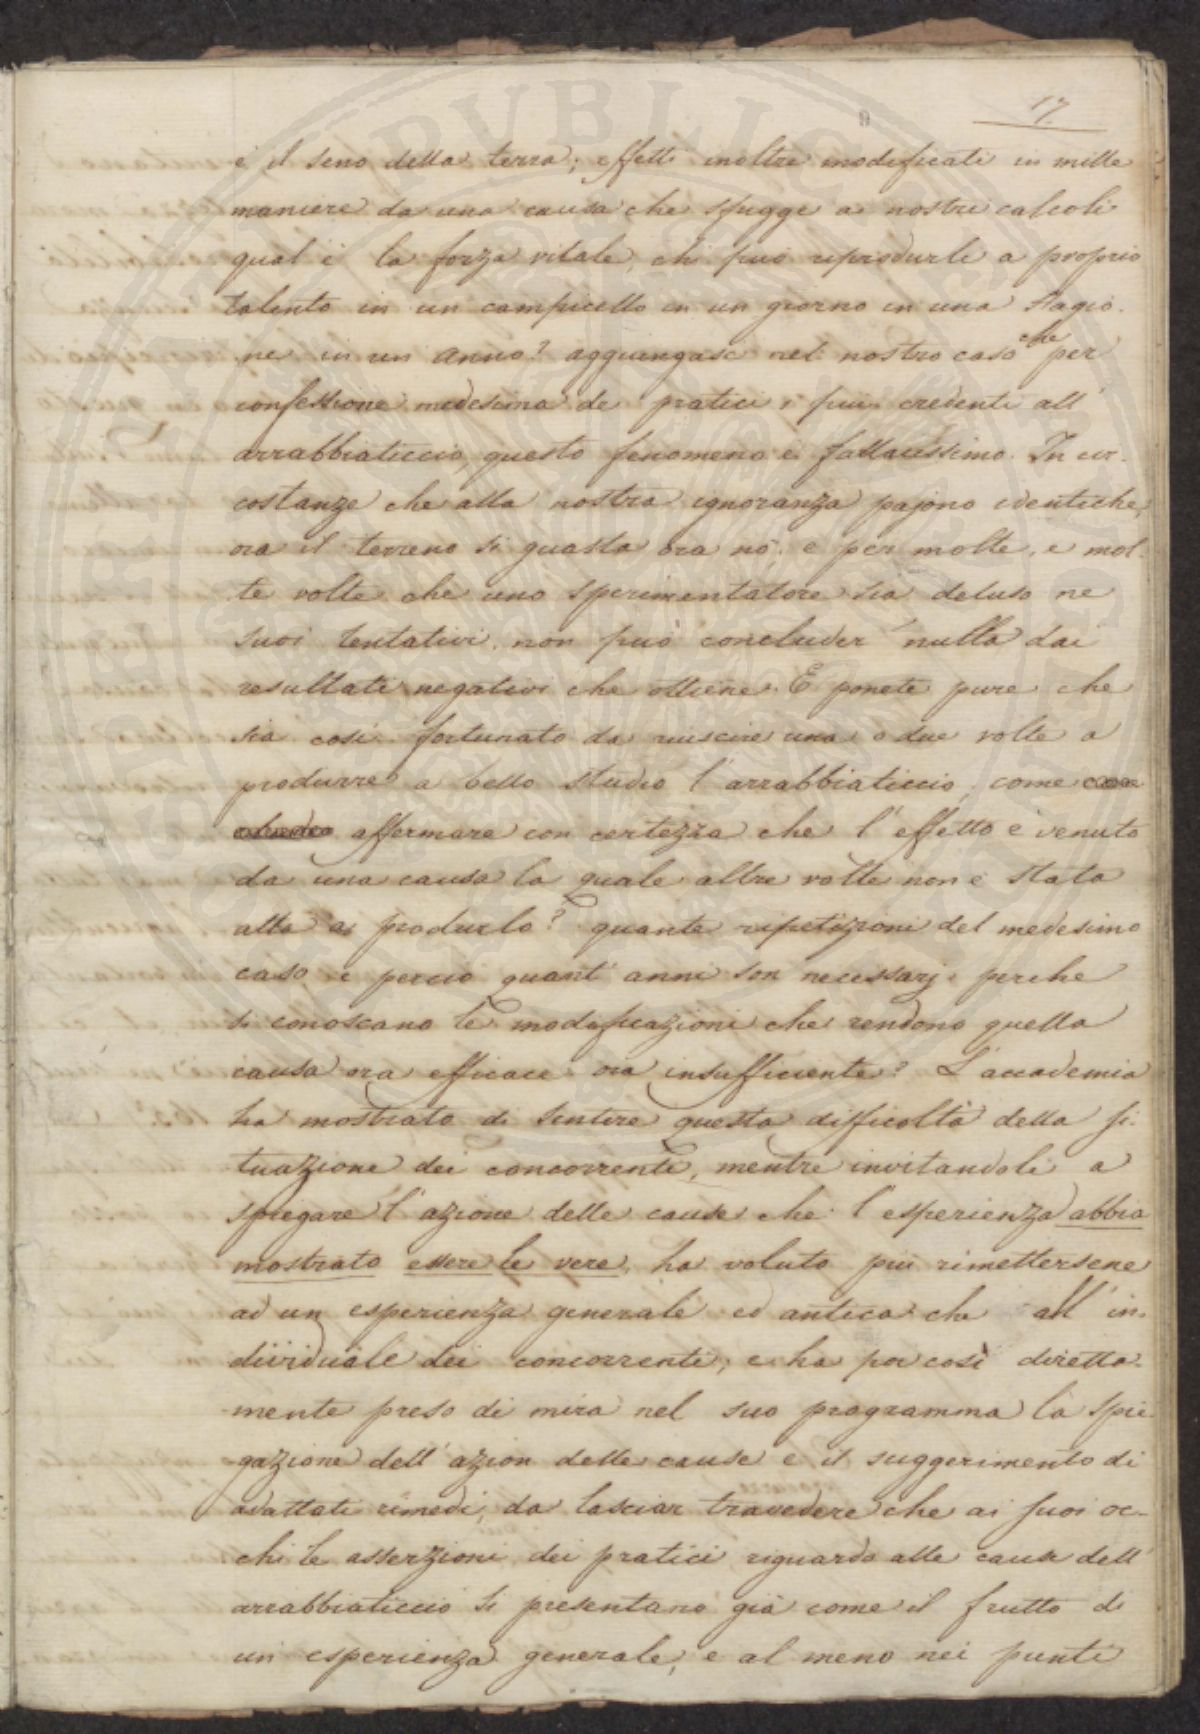 17
e il seno della terra; effetti inoltre modificati in mille
maniere da una causa che sfugge a nostri calcoli
qual è la forza vitale, chi può riprodurli a proprio
talento in un campicello in un giorno in una stagio-
ne in un anno? aggiungasi nel nostro caso che per
confessione medesima de pratici i più credenti all'
arrabbiaticcio, questo fenomeno è fallacissimo. In cir-
costanze che alla nostra ignoranza pajono identiche,
ora il terreno si guasta ora nò; e per molte, e mol-
te volte che uno sperimentatore sia deluso ne
suoi tentativi, non può concluder nulla dai
resultati negativi che ottiene. E ponete pure che
sia così fortunato da riuscire una o due volte a
produrre a bello studio l'arrabbiaticcio, come
affermare con certezza che l'effetto è venuto
da una causa la quale altre volte non è stata
atta a produrlo? quante ripetizioni del medesimo
caso e perciò quant' anni son necessarj perche
si conoscano le modificazioni che rendono quella
causa ora efficace ora insufficiente? L'accademia
ha mostrato di sentire questa difficoltà della si-
tuazione dei concorrenti, mentre invitandoli a
spiegare l'azione delle cause che l'esperienza abbia
mostrato essere le vere, ha voluto più rimettersene
ad un esperienza generale ed antica che all'in-
dividuale dei concorrenti; e ha poi così diretta-
mente preso di mira nel suo programma la spie-
gazione dell'azion delle cause e il suggerimento di
adattati rimedi, da lasciar travedere che ai suoi oc-
chi le asserzioni dei pratici riguardo alle cause dell'
arrabbiaticcio si presentano già come il frutto di
un esperienza generale, e al meno nei punti